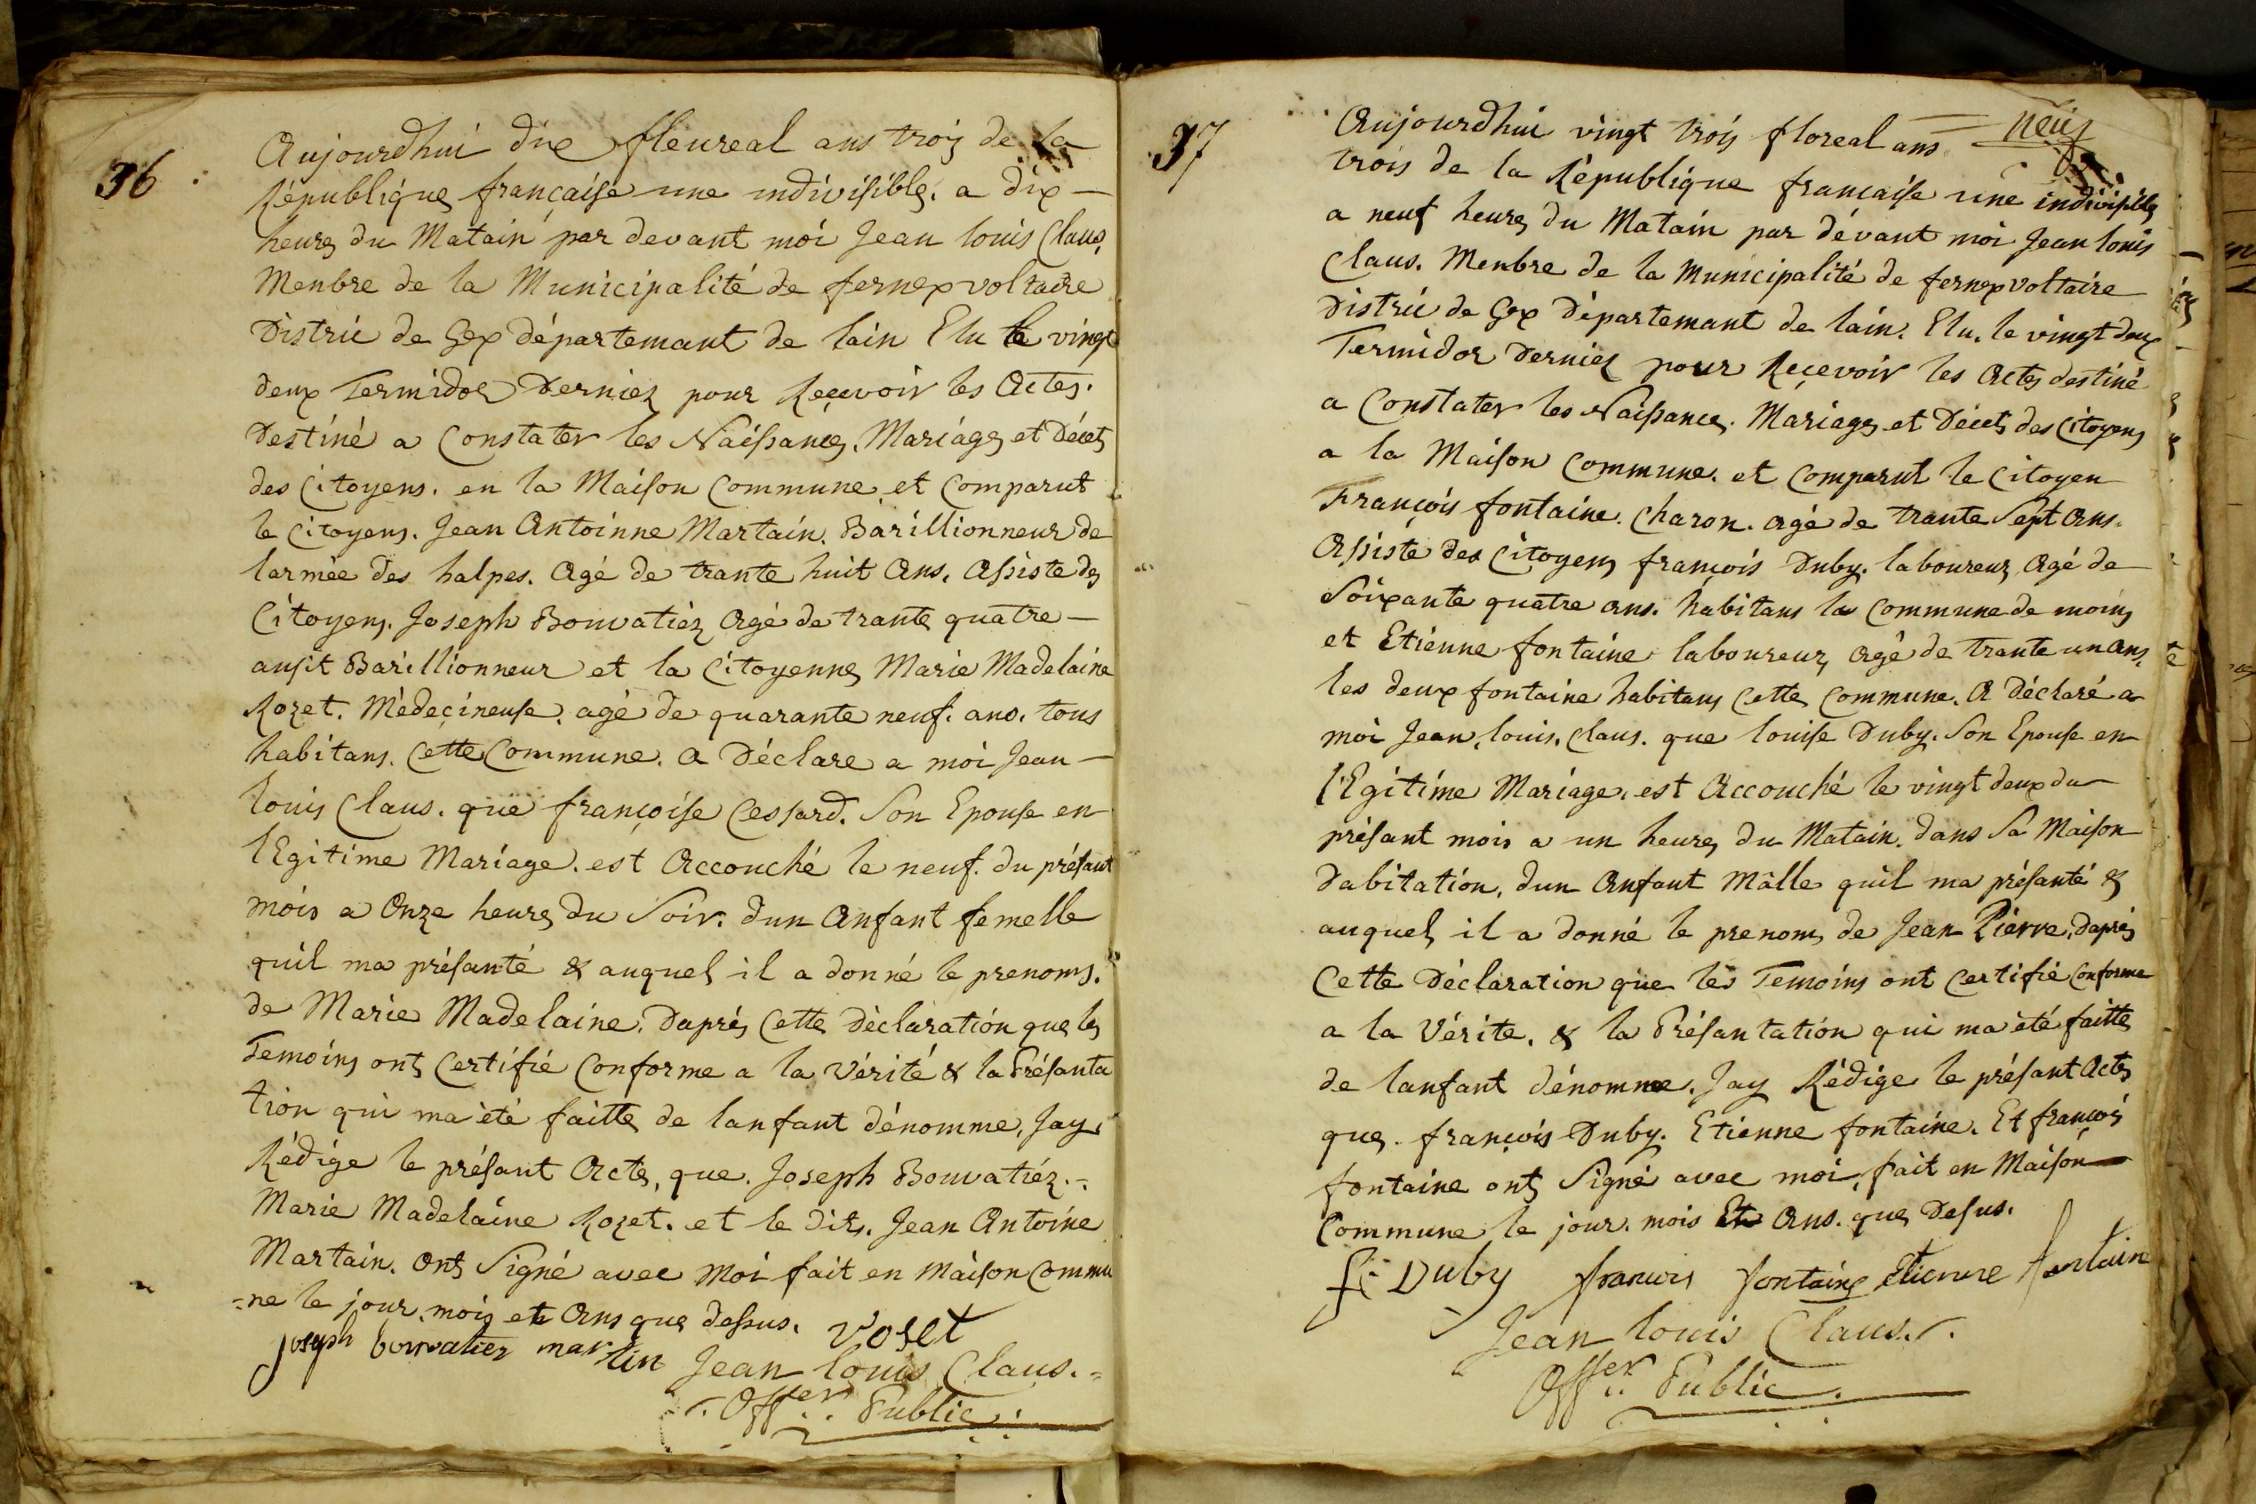 36
Aujourdhui dix fleureal ans trois de la
République française une indivisible. a dix —
heures du Matain par devant moi Jean louis Claus,
Menbre de la Municipalité de fernex voltaire
District de Gex département de lain Elu le vingt
deux Termidor Dernier pour Reçevoir les Actes.
Destiné a Constater les Naissances, Mariages et Décets
des Citoyens. en la Maison Commune et Comparut
le Citoyens. Jean Antoinne Martain. Barillionneur de
larmée des halpes. Agé de trante huit Ans, Assiste des
Citoyens. Joseph Bouvatiér Agé de trante quatre —
ausit Barillionneur et la Citoyenne Marie Madelaine
Rozet. Médeçineuse. agé de quarante neuf. ans. tous
habitans. Cette Commune. a Déclare a moi Jean —
louis Claus. que françoise Cessard. Son Epouse en
lEgitime Mariage. est Accouché le neuf. du présant
mois a Onze heures du Soir. dun Anfant femelle
quil ma présanté & auquel il a donné le prenoms.
de Marie Madelaine. Daprés Cette Déclaration que les
Temoins ont Certifié Conforme a la Vérité & la Présanta
tion qui ma été faitte de lanfant dénomme, Jay
Rédige le présant Acte, que. Joseph Bouvatiér. -
Marie Madelaine Rozet. et le Dit. Jean Antoine
Martain. Ont Signé avec Moi fait en Maison Commu
-ne le jour. mois et Ans que dessus. Voset
joseph bouvatier martin Jean louis Claus. =
Offer. Public.
37
Aujourdhui vingt trois floreal ans — neuf
trois de la République francaise une indivisible
a neuf heures du Matain par dévant moi Jean louis
Claus. Menbre de la Municipalité de fernex voltaire
District de Gex Départemant de lain. Elu. le vingt deux
Termidor Dernier pour Reçevoir les Actes destiné
a Constater les Naissances. Mariages et Décets des Citoyens
a la Maison Commune. et Comparut le Citoyen
François fontaine. Charon. agé de trante Sept Ans.
Assiste des Citoyens françois Duby. laboureur Agé de
Soixante quatre ans. habitans la Commune de moins
et Etiénne fontaine laboureur, Agé de trante un ans,
les deux fontaine habitans Cette Commune. A Déclaré a
moi Jean, louis, Claus. que louise Duby. Son Epouse en
lEgitime Mariage. est Accouché le vingt deux du
présant mois a un heures du Matain. dans Sa Maison
Dabitation, dun Anfant Mâlle quil ma présanté &
auquel il a donné le prenoms de Jean Piérre, daprés
Cette Déclaration que les Temoins ont Certifié Conforme
a la Vérite. & la Présantation qui ma été faitte
de lanfant dénomme. Jay Rédige le présant Acte
que. françois Duby. Etienne fontaine. Et françois
fontaine ont Signé avec moi, fait en Maison
Commune le jour. mois Et Ans. que Desus.
fs Duby francois fontaine Etienne fontain
Jean louis Claus.
Offer. Public.